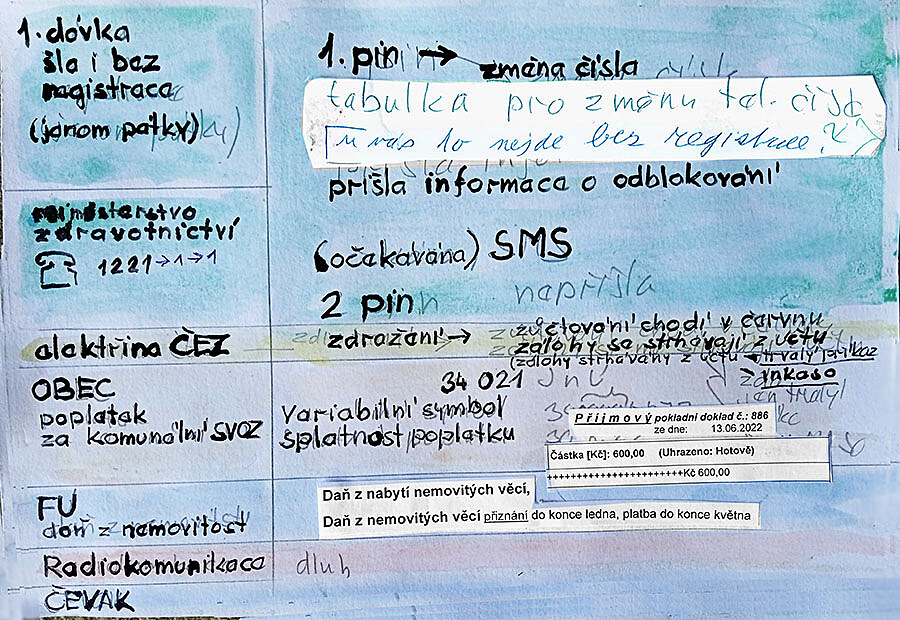 1. dovka
šla i bez
registraca
(jenom patky)
1. pin → změna čísla
tabulka pro změnu tel. čísl
u vás to nejde bez registrace?
přišla informaca o odblokovaní
ministerstvo
zdravotnictví
1221→1→1
(očakavana) SMS
2 pin
napřišla
alaktřina ČEZ
zdražaní →
zůčtovaní chodí v čarvnu
zálohy sa strhavají z účtu
(zdlohy strhávány z účtu
trvalý příkaz
inkaso
OBEC
poplatak
za komunální SVOZ
34 021
Variabilní symbol
Splatnost poplatku
Příjmový pokladní doklad č.: 886
ze dne: 13.06.2022
Částka [Kč]: 600,00 (Uhrazeno: Hotově)
+++++++++++++++++++++++Kč 600,00
FU
daň z namovitost
Daň z nabytí nemovitých věcí,
Daň z nemovitých věcí přiznání do konce ledna, platba do konce května
Radiokomunikaca
dluh
ČEVAK